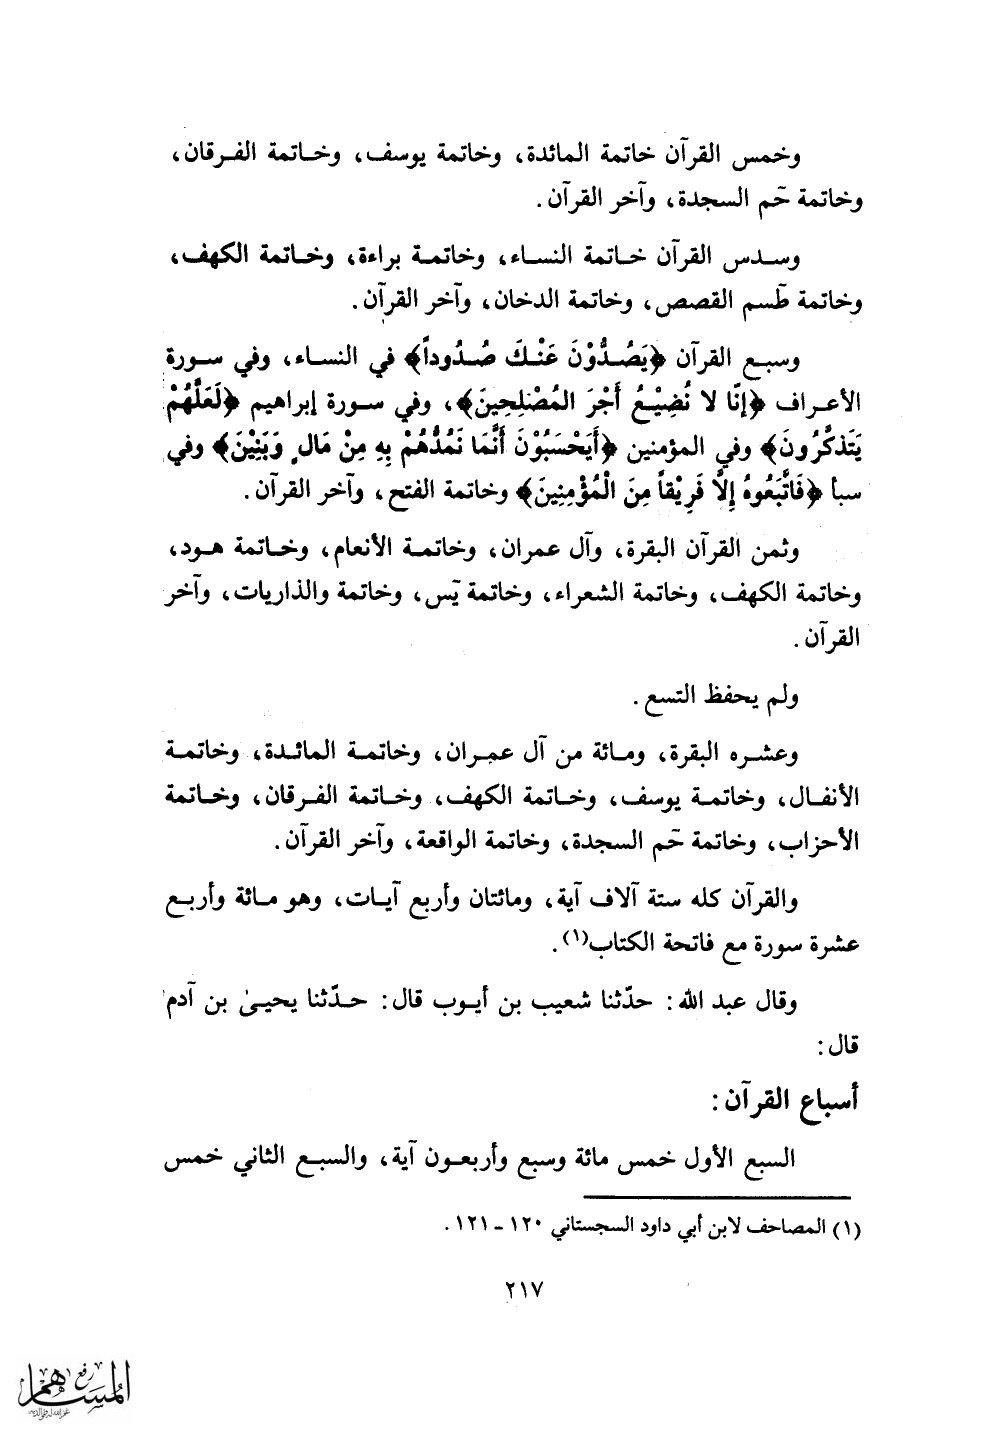 وخمس القرآن خاتمة المائدة، وخاتمة يوسف، وخاتمة الفرقان،
وخاتمة حٓم السجدة، وآخر القرآن.
وسدس القرآن خاتمة النساء، وخاتمة براءة، وخاتمة الكهف،
وخاتمة طٓسم القصص، وخاتمة الدخان، وآخر القرآن.
وسبع القرآن ﴿يَصُدُّوْنَ عَنْكَ صُدُوداً﴾ في النساء، وفي سورة
الأعراف ﴿إنّا لا نُضِيْعُ أَجْرَ المُصْلِحِينَ﴾، وفي سورة إبراهيم ﴿لَعَلَّهُمْ
يَتَذكَّرُونَ﴾ وفي المؤمنين ﴿أَيَحْسَبُوْنَ أَنَّمَا نَمُدُّهُمْ بِهِ مِنْ مَالٍ وَبَنِيْنَ﴾ وفي
سبأ ﴿فَاتَّبَعُوهُ إِلاَّ فَرِيْقاً مِنَ الْمُؤْمِنِينَ﴾ وخاتمة الفتح، وآخر القرآن.
وثمن القرآن البقرة، وآل عمران، وخاتمة الأنعام، وخاتمة هود،
وخاتمة الكهف، وخاتمة الشعراء، وخاتمة يٓس، وخاتمة والذاريات، وآخر
القرآن.
ولم يحفظ التسع.
وعشره البقرة، ومائة من آل عمران، وخاتمة المائدة، وخاتمة
الأنفال، وخاتمة يوسف، وخاتمة الكهف، وخاتمة الفرقان، وخاتمة
الأحزاب، وخاتمة حٓم السجدة، وخاتمة الواقعة، وآخر القرآن.
والقرآن كله ستة آلاف آية، ومائتان وأربع آيات، وهو مائة وأربع
عشرة سورة مع فاتحة الكتاب(١).
وقال عبد الله: حدّثنا شعيب بن أيوب قال: حدّثنا يحيىٰ بن آدم
قال:
أسباع القرآن:
السبع الأول خمس مائة وسبع وأربعون آية، والسبع الثاني خمس
(١) المصاحف لابن أبي داود السجستاني ١٢٠ - ١٢١.
٢١٧